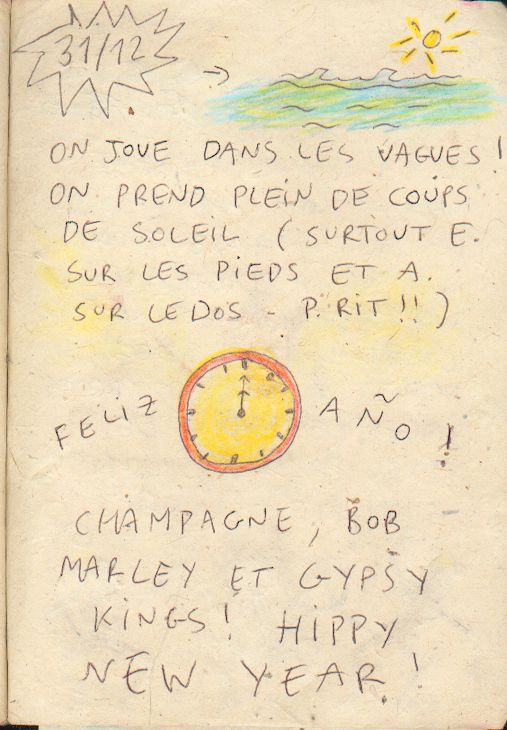 31/12
ON JOUE DANS LES VAGUES !
ON PREND PLEIN DE COUPS
DE SOLEIL (SURTOUT E.
SUR LES PIEDS ET A.
SUR LE DOS - P. RIT !!)
FELIZ AÑO !
CHAMPAGNE, BOB
MARLEY ET GYPSY
KINGS ! HIPPY
NEW YEAR !